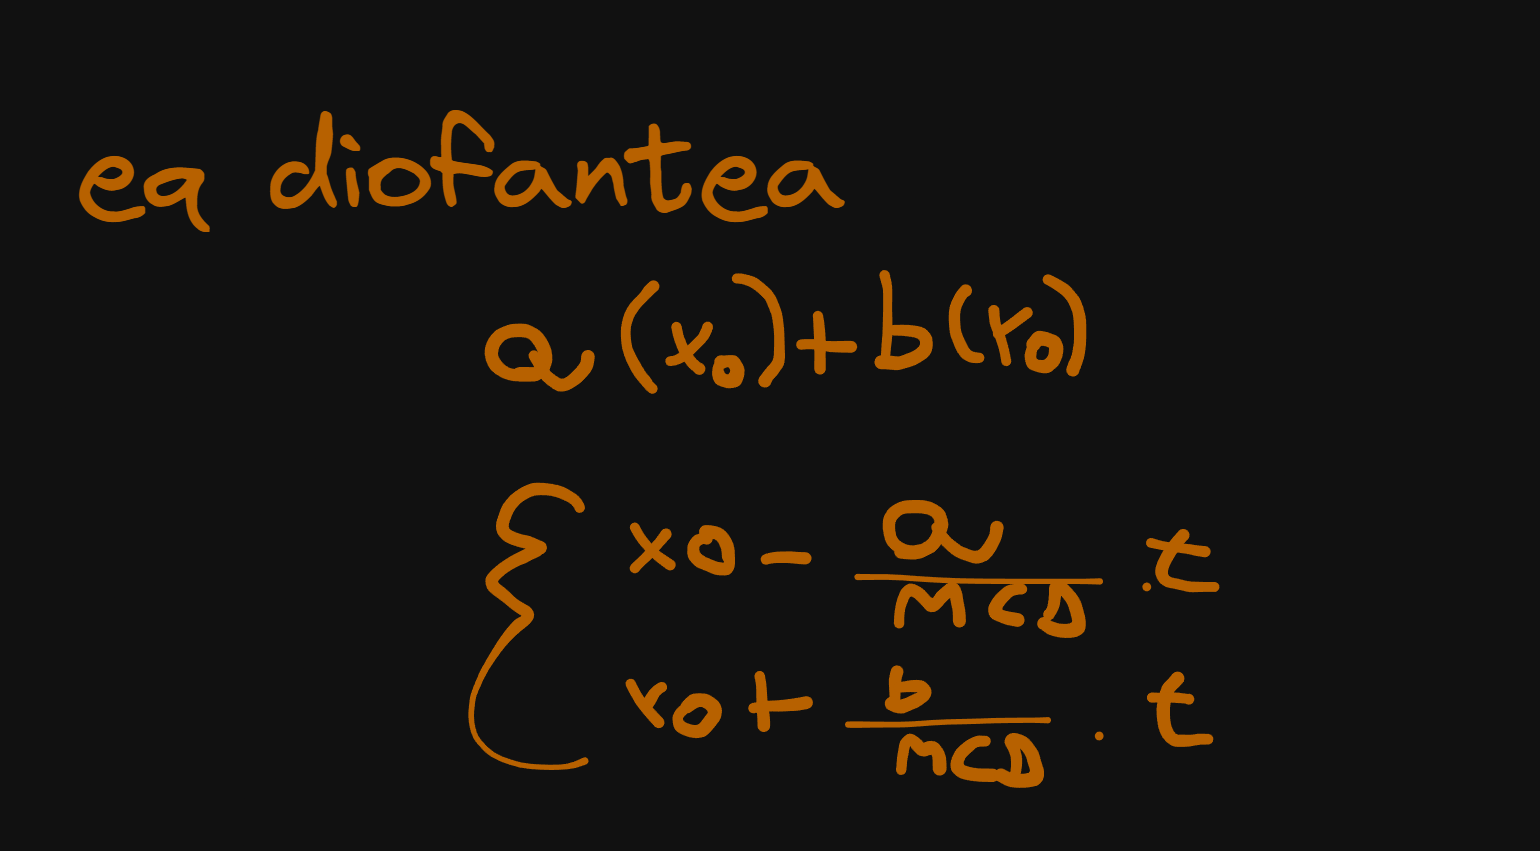 eq diofantea
a(x₀)+b(y₀)
x0 - a/MCD . t
y0 + b/MCD . t